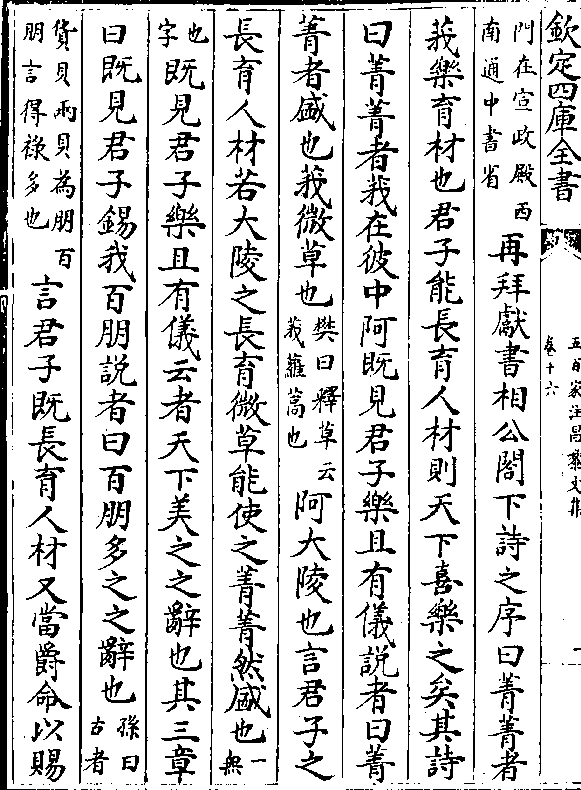 欽定四庫全書
五百家注昌黎文集
卷十六
一
門在宣政殿西南通中書省再拜獻書相公閣下詩之序曰菁菁者
莪樂育材也君子能長育人材則天下喜樂之矣其詩
曰菁菁者莪在彼中阿既見君子樂且有儀説者曰菁
菁者盛也莪微草也樊曰釋草云莪蘿蒿也阿大陵也言君子之
長育人材若大陵之長育微草能使之菁菁然盛也一無
也字既見君子樂且有儀云者天下美之之辭也其三章
曰既見君子錫我百朋説者曰百朋多之之辭也孫曰古者
貨貝兩貝為朋百朋言得祿多也言君子既長育人材又當爵命以賜